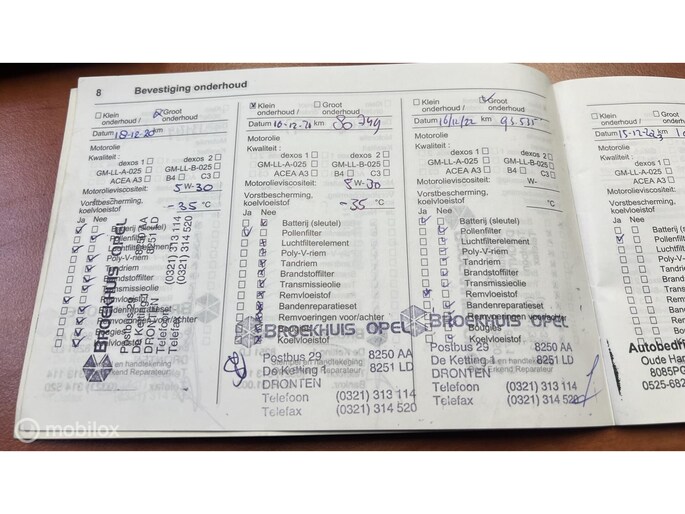 8 Bevestiging onderhoud
Klein onderhoud / Groot onderhoud
Datum 18-12-20 km
Motorolie
Kwaliteit :
dexos 1 dexos 2
GM-LL-A-025 GM-LL-B-025
ACEA A3 B4 C3
Motorolieviscositeit: 5 W-30
Vorstbescherming,
koelvloeistof -35 °C
Ja Nee
Batterij (sleutel)
Pollenfilter
Luchtfilterelement
Poly-V-riem
Tandriem
Brandstoffilter
Transmissieolie
Remvloeistof
Bandenreparatieset
Remvoeringen voor/achter
Bougies
Koelvloeistof
BROEKHUIS OPEL
Postbus 29 8250 AA
De Ketting 1 8251 LD
DRONTEN
Telefoon (0321) 313 114
Telefax (0321) 314 520
Klein onderhoud / Groot onderhoud
Datum 16-12-21 km 80 749
Motorolie
Kwaliteit :
dexos 1 dexos 2
GM-LL-A-025 GM-LL-B-025
ACEA A3 B4 C3
Motorolieviscositeit: W-30
Vorstbescherming,
koelvloeistof -35 °C
Ja Nee
Batterij (sleutel)
Pollenfilter
Luchtfilterelement
Poly-V-riem
Tandriem
Brandstoffilter
Transmissieolie
Remvloeistof
Bandenreparatieset
Remvoeringen voor/achter
Bougies
Koelvloeistof
BROEKHUIS OPEL
Postbus 29 8250 AA
De Ketting 1 8251 LD
DRONTEN
Telefoon (0321) 313 114
Telefax (0321) 314 520
Klein onderhoud / Groot onderhoud
Datum 16/11/22 km 93.535
Motorolie
Kwaliteit :
dexos 1 dexos 2
GM-LL-A-025 GM-LL-B-025
ACEA A3 B4 C3
Motorolieviscositeit: W-
Vorstbescherming,
koelvloeistof °C
Ja Nee
Batterij (sleutel)
Pollenfilter
Luchtfilterelement
Poly-V-riem
Tandriem
Brandstoffilter
Transmissieolie
Remvloeistof
Bandenreparatieset
Remvoeringen voor/achter
Bougies
Koelvloeistof
BROEKHUIS OPEL
Postbus 29 8250 AA
De Ketting 1 8251 LD
DRONTEN
Telefoon (0321) 313 114
Telefax (0321) 314 520
Klein onderhoud / Groot onderhoud
Datum km
Motorolie
Kwaliteit :
dexos 1
GM-LL-A-025
ACEA A3
Motorolieviscositeit:
Vorstbescherming,
koelvloeistof
Ja Nee
Batterij
Pollenfilter
Autobedrijf
Oude Har
8085PG
0525-682
mobilox